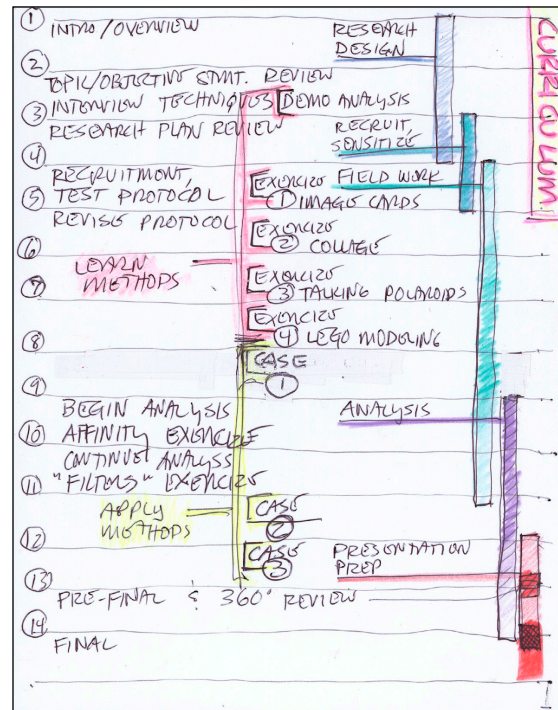 CURRICULUM
① INTRO/OVERVIEW
RESEARCH
DESIGN
②
TOPIC/OBJECTIVE STMT. REVIEW
③ INTERVIEW TECHNIQUES
DEMO ANALYSIS
RESEARCH PLAN REVIEW
RECRUIT,
SENSITIZE
④
RECRUITMENT,
⑤ TEST PROTOCOL
REVISE PROTOCOL
EXERCIZE
① IMAGE CARDS
FIELD WORK
EXERCIZE
② COLLAGE
⑥
LEARN
METHODS
⑦
EXERCIZE
③ TALKING POLAROIDS
EXERCIZE
④ LEGO MODELING
⑧
CASE
①
⑨
BEGIN ANALYSIS
ANALYSIS
⑩ AFFINITY EXERCIZE
CONTINUE ANALYSIS
⑪ "FILTERS" EXERCIZE
APPLY
METHODS
CASE
②
⑫
CASE
③
PRESENTATION
PREP
⑬
PRE-FINAL & 360° REVIEW
⑭
FINAL